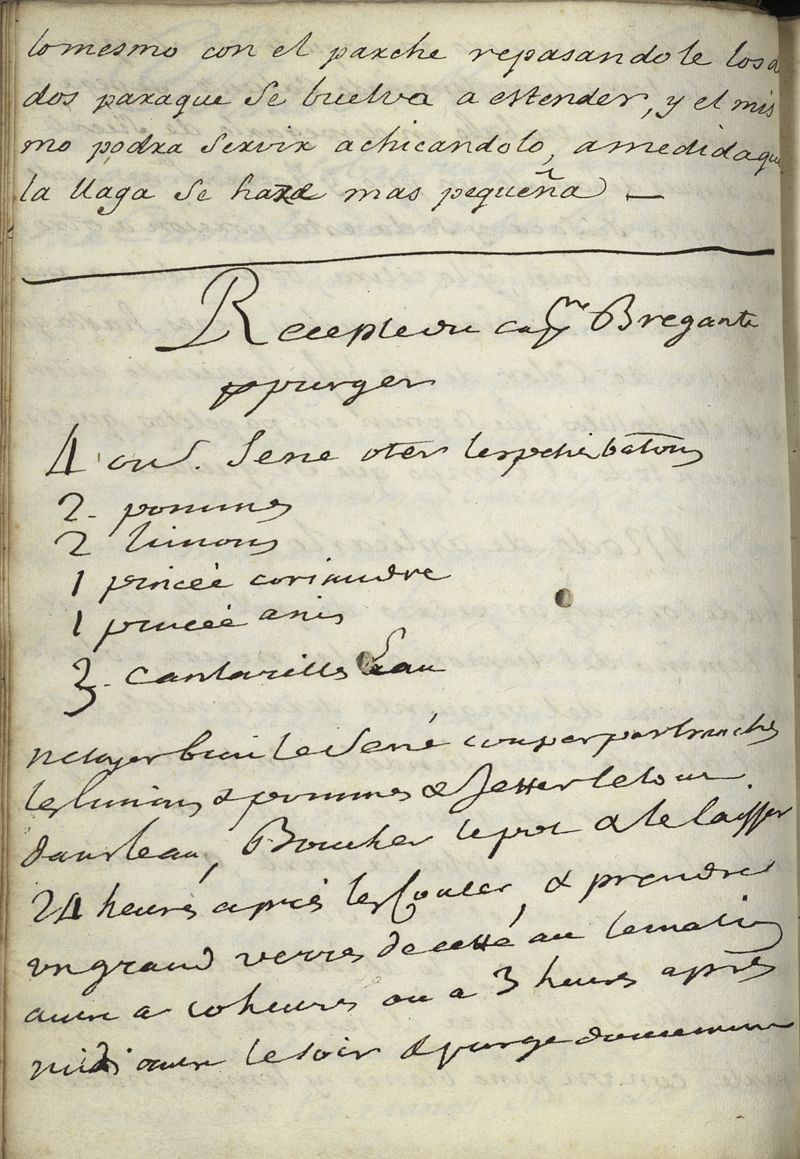 lo mesmo con el parche repasandole los d
dos paraque se buelva a estender, y el mis
mo podra servir achicandolo, amedidaque
la llaga se hara mas pequeña —
Recepte du cap.ne Bregante
p purger
4 onc. Sene oter les petis batons
2. pommes
2 limons
1 pincéé coriandre
1 pincéé anis
3. cantarilles Eau
netoyer bien le Sené couper par tranches
les limons & pommes & Jetter le tout
dans leau, Boucher le pot & le laisser
24 heures après les Couler, & prendre
un grand verres de cette au le matin
autre a 10 heures ou a 3 heures après
midi autre le soir & purge doucement